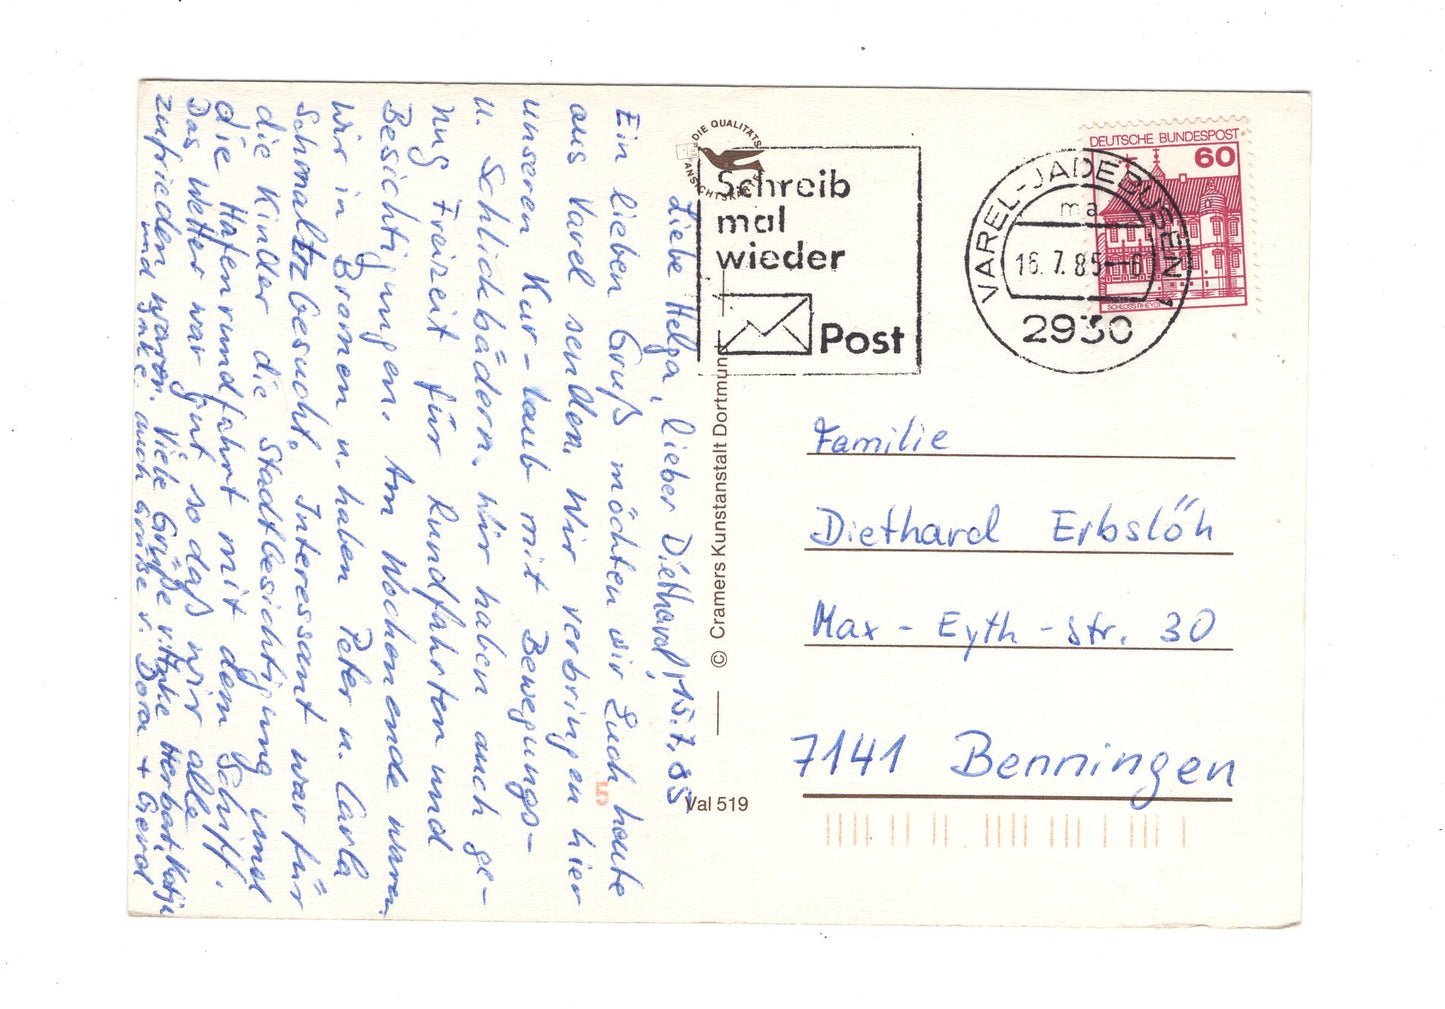 Liebe Helga, lieber Diethard, 15.7.85
Ein lieben Gruß möchten wir Euch heute
aus Varel senden. Wir verbringen hier
unseren Kur-laub mit Bewegungs-
u. Schlickbädern. Wir haben auch ge-
nug Freizeit für Rundfahrten und
Besichtigungen. Am Wochenende waren
wir in Bremen u. haben Peter u. Carla
Schmaltz besucht. Interessant war für
die Kinder die Stadtbesichtigung und
die Hafenrundfahrt mit dem Schiff.
Das Wetter war gut, so daß wir alle
zufrieden waren. Viele Grüße v. Herbert, Katja
und Imke. auch Grüße v. Dora + Gerd
DIE QUALITÄTS
ANSICHTSKARTE
Schreib
mal
wieder
Post
VAREL-JADEBUSEN 1
ma
16.7.85--6
2930
DEUTSCHE BUNDESPOST
60
SCHLOSS RHEYDT
© Cramers Kunstanstalt Dortmund
Val 519
Familie
Diethard Erbslöh
Max-Eyth-Str. 30
7141 Benningen